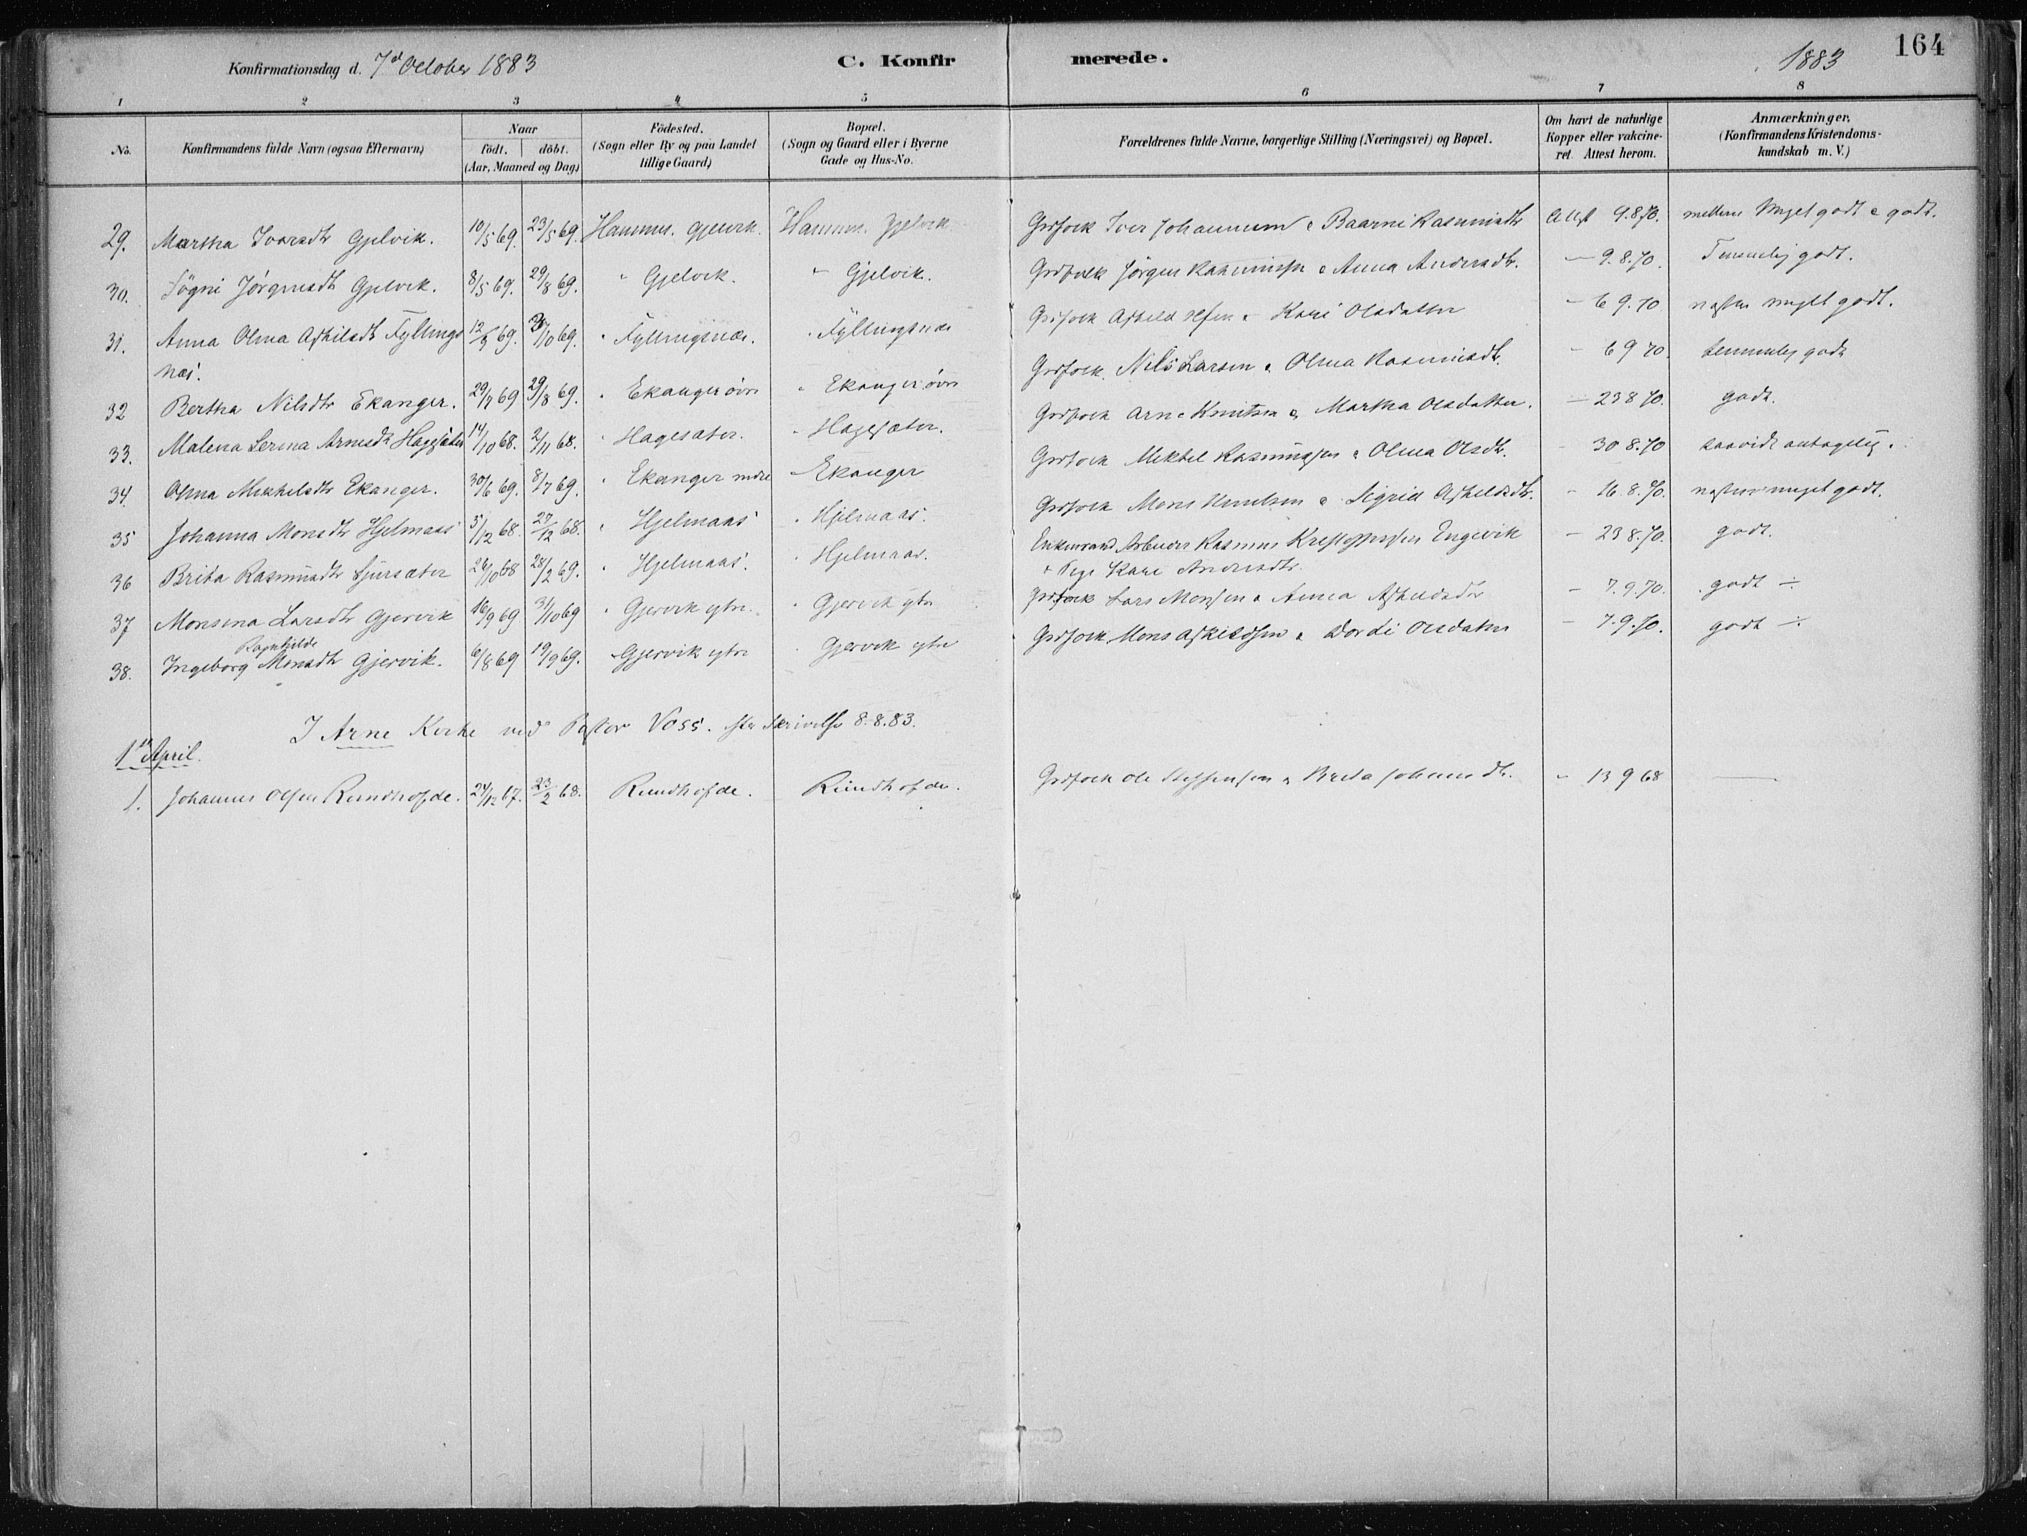 164
Konfirmationsdag d. 7d October 1883 C. Konfirmerede. 1883
1 2 3 4 5 6 7 8
No. Konfirmandens fulde Navn (ogsaa Efternavn) Naar født. døbt. (Aar, Maaned og Dag) Fødested. (Sogn eller By og paa Landet tillige Gaard) Bopæl. (Sogn og Gaard eller i Byerne Gade og Hus-No. Forældrenes fulde Navne, borgerlige Stilling (Næringsvei) og Bopæl. Om havt de naturlige Kopper eller vakcineret Attest herom. Anmærkninger. (Konfirmandens Kristendomskundskab m. V.)
29. Martha Ivarsdtr Gjelvik. 10/5 69. 23/5 69. Hammer. Gjelvik. Hammer. Gjelvik Grdfolk Iver Johannesen & Baarni Rasmusdtr Attest 9.8.70. mellem Meget godt & godt.
30. Søgni Jørgensdtr Gjelvik. 8/5 69. 29/8 69. " Gjelvik. " Gjelvik. Grdfolk Jørgen Rasmussen & Anna Andersdtr. — 9.8.70. Temmelig godt.
31. Anna Olina Askilsdtr Fyllings 12/9 69. /10 69. " Fyllingsnæs. " Fyllingsnæs Grdfolk Askild Olsen & Kari Olsdatter — 6 9.70 næsten meget godt.
næs.
32 Bertha Nilsdtr Ekanger. 29/7 69 29/8 69. " Ekanger øvre " Ekanger øvre Grdfolk. Nils Larsen & Olina Rasmusdtr. — 6 9 70. temmelig godt
33. Malena Serina Arnesdtr Hagesæter 14/10 68. 2/11 68. " Hagesæter. " Hagesæter. Grdfolk Arne Knutsen & Martha Olsdatter. — 23 8 70. godt.
34. Olina Mikkelsdtr Ekanger. 30/6 69. 8/7 69. " Ekanger nedre " Ekanger Grdfolk Mikkel Rasmussen & Olina Olsdtr. — 30 8.70 saavidt antagelig.
35 Johanna Monsdtr Hjelmaas 5/12 68. 27/12 68. " Hjelmaas " Hjelmaas. Grdfolk Mons Knutsen & Sigrid Askildsdtr. — 16.8.70. næsten meget godt.
36 Brita Rasmusdtr Sjursæter 26/10 68 28/2 69. " Hjelmaas. " Hjelmaas. Enkemand Arbeider Rasmus Kristoffersen Engevik — 23 8.70. godt.
& Pige Kari Andersdtr.
37 Monsina Larsdtr Gjervik 16/9 69 31/10 69 " Gjervik ytre. " Gjervik ytre Grdfolk Lars Monsen & Anna Askildsdtr — 7.9.70. godt ÷
Ragnhilde
38. Ingeborg Monsdtr Gjervik. 6/8 69 19/9 69. Gjervik ytre " Gjervik ytre Grdfolk Mons Askildsen & Dordi Olsdatter — 7.9.70. godt ÷
I Arne Kirke ved Pastor Voss. efter Skrivelse 8.8.83.
1ste April.
1. Johannes Olsen Rundhofde. 24/12 67. 23/2 68. Rundhofde. Rundhofde. Grdfolk Ole Steffensen & Brita Johannesdtr. — 13 9 68 —